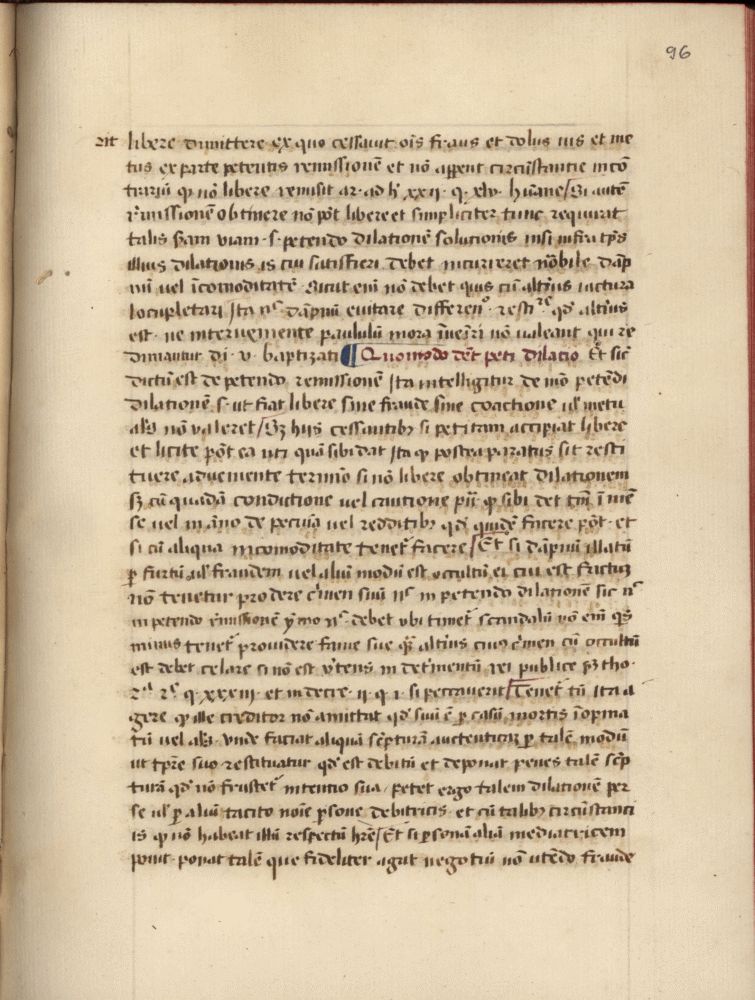 96
rit libere dimittere ex quo cessauit oīs fraus et dolus uis et me
tus ex parte petentis remissionē et nō appent circūstantie in cō
trariū qꝫ nō libere remisit ar. ad h̄ xxij. q. xlv. hūane / Si autē
r̄missionē obtinere nō pōt libere et simpliciter tunc requirat
talis sc̄dam uiam. s. petendo dilationē solutionis nisi infra tp̄s
illius dilationis is cui satisfieri debet incurreret nōbile dāp
nū uel īcomoditatē. Sicut enī nō debet quis cū alti9 iactura
locupletari Ita dāpnū euitare qd̄ alti9
est. ne interueniente paululū mora īueīri nō ualeant qui re
dimantur di. v. baptizati ¶ Quomodo dēt peti dilatio Et sic
dictū est de petendo remissionē Ita intelligitur de mō petēdi
dilationē s. ut fiat libere sine fraude sine coactione ul̄ metu
als̄ nō ualeret / Sꝫ hiis cessantibꝫ si petitam accipiat libere
et licite pōt ea uti quā sibi dat Ita qꝫ postea paratus sit resti
tuere adueniente termīo si nō libere obtineat dilationem
sꝫ cū quadā condictione uel cautione qꝫ sibi det tm̄ ī mē
se uel in āno de pecūa uel redditibꝫ qd̄ quidē facere pōt. et
si cū aliqua incomoditate tenet̄ facere / Et si dāpnū illatū
ꝑ furtū ul̄ fraudem uel aliū modū est occultū ei cui est factuꝫ
nō tenetur prodere c̄men suū in petendo dilationē sic
in petendo r̄missionē ymo debet ubi timet̄ scandalū nō enī
minus tenet̄ prouidere fame sue alti9 cui9 c̄men cū occultū
est debet celare si nō est u̇tens in det̄mentū rei publice tho.
q. xxxiij. et in decre. ij. q. 1. si peccauerit / Tenet̄ tn̄ Ita a
gere qꝫ ille creditor nō amittat qd̄ suū ē ꝑ casū mortis īopina
tū uel als̄. unde faciat aliquā sc̄pturā auctenticaꝫ ꝑ talē modū
ut tp̄re suo restituatur qd̄ est debitū et deponat penes talē sc̄p
turā qd̄ nō frustet̄ intentio sua. petet ergo talem dilationē per
se ul̄ ꝑ aliū tacito noīe ꝑsone debitricis. et cū talibꝫ circūstanci
is qꝫ nō habeat illū respectū hr̄e / Et si ꝑsonā aliā mediatricem
ponit. ponat talē que fideliter agat negotiū nō utēdo fraude